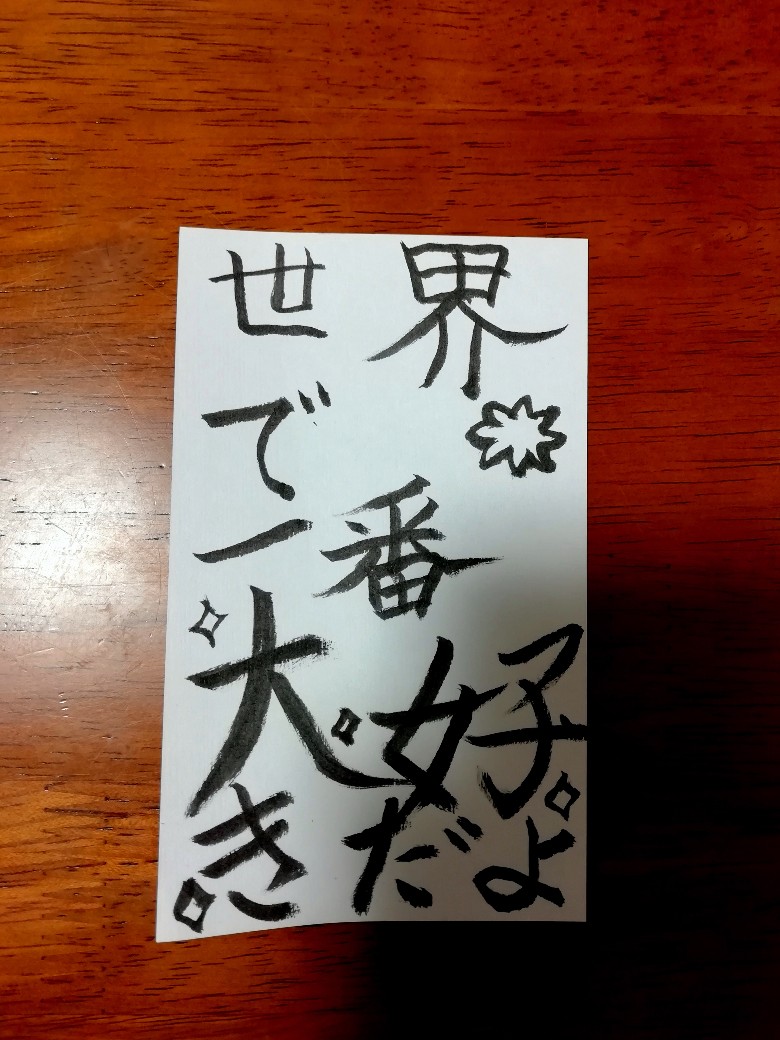 世界
で
一番
大好
きだよ